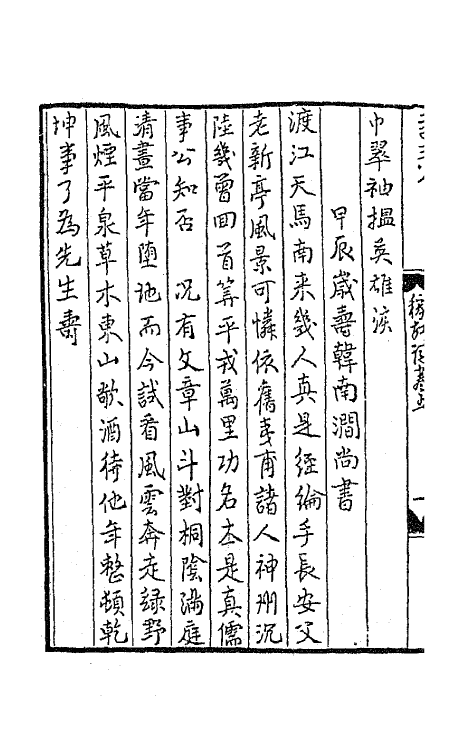 巾翠袖揾英雄淚
甲辰歲壽韓南澗尚書
渡江天馬南来幾人真是經綸手長安父
老新亭風景可憐依舊夷甫諸人神州沉
陸幾曾回首筭平戎萬里功名本是真儒
事公知否 况有文章山斗對桐陰滿庭
清晝當年墮地而今試看風雲奔走緑野
風煙平泉草木東山歌酒待他年整頓乾
坤事了為先生壽